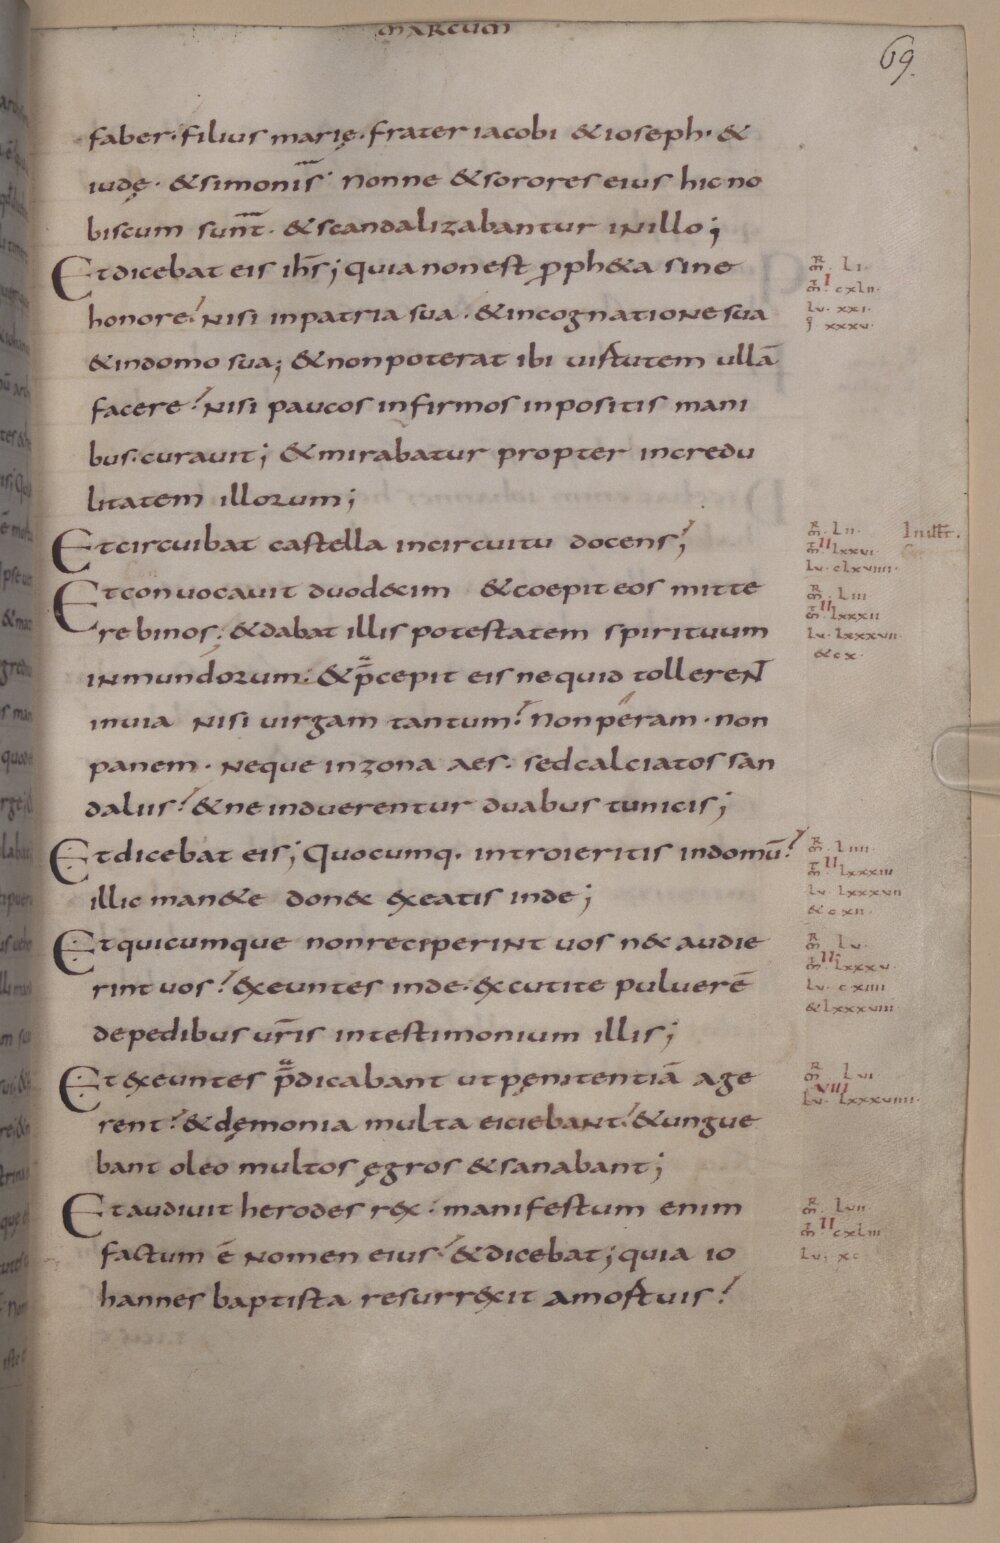 MARCUM
69.
faber· filius marię· frater iacobi & ioseph· &
iudę· & simonis̄· Nonne & sorores eius hic no
biscum sunt̄· & scandalizabantur iN illo;
Et dicebat eis ih̄s; quia non est ꝓph&a sine
honore? Nisi in patria sua· & in cognatioNe sua
& in domo sua; & non poterat ibi uirtutem ullā
facere? Nisi paucos infirmos inpositis mani
bus· curauit; & mirabatur propter incredu
litatem illorum;
Et circuibat castella in circuitu docens;
Et conuocauit duod&cim & coepit eos mitte
re binos; & dabat illis potestatem spirituum
iNmundorum: & p̄cepit eis ne quid tollereNT
in uia Nisi uirgam tantum? Non peram· non
panem· Neque in zona aes· sed calciatos san
daliis? & ne induerentur duabus tunicis;
Et dicebat eis; Quocumq· introieritis in domū?
illic man&e don&c exeatis inde;
Et quicumque non reciperiNt uos nec audie
rint uos? exeuntes inde· excutite puluerē
de pedibus ur̄is in testimonium illis;
Et exeuntes p̄dicabant ut pęnitentiā age
rent? & dęmonia multa eiciebaNt? & ungue
bant oleo multos ęgros & sanabant;
Et audiuit herodes rex: manifestum enim
factum ē Nomen eius? & dicebat; quia io
hannes baptista resurrexit a mortuis?
MR· LI·
MT· I cxlii·
Lu· xxi·
J xxxv·
MR· LII·
MT· II lxxvi
Lu· clxviiii·
MR· LIII
MT· II lxxxii
Lu· lxxxvii·
& cx·
MR· LIIII·
MT· II lxxxiii
Lu· lxxxvii
& cxii·
MR· LV·
MT· II lxxxv·
Lu· cxiiii
& lxxxviii
MR· LVI
Lu· VIII lxxxviiii·
MR· LVII
MT· II cxliii
Lu· xc